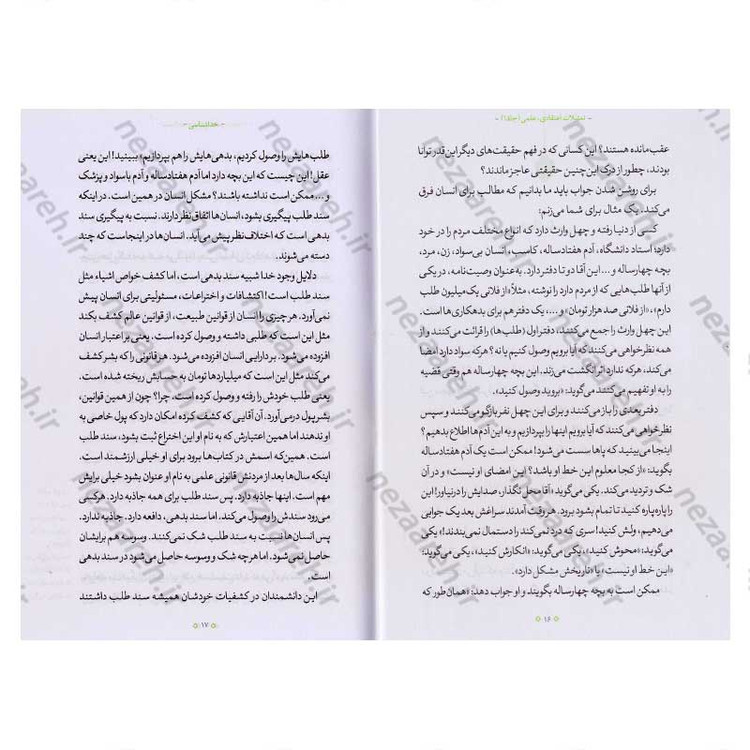 - تمثیلات اعتقادی، علمی (جلد۱) -
عقب‌مانده هستند؟ این کسانی که در فهم حقیقت‌های دیگر این قدر توانا
بودند، چطور از درک این‌چنین حقیقتی عاجز ماندند؟
برای روشن شدن جواب باید ما بدانیم که مطالب برای انسان فرق
می‌کند. یک مثال برای شما می‌زنم:
کسی از دنیا رفته و چهل وارث دارد که انواع مختلف مردم را در خود
دارد؛ استاد دانشگاه، آدم هفتادساله، کاسب، انسان بی‌سواد، زن، مرد،
بچه چهارساله و ... این آقا دو تا دفتر دارد. به‌عنوان وصیت‌نامه، در یکی
از آنها طلب‌هایی که از مردم دارد را نوشته، مثلاً «از فلانی یک میلیون طلب
دارم»، «از فلانی صد هزار تومان» و ...، یک دفتر هم برای بدهکاری‌ها است.
این چهل وارث را جمع می‌کنند، دفتر اول (طلب‌ها) را قرائت می‌کنند و از
همه نظرخواهی می‌کنند که آیا برویم وصول کنیم یا نه؟ هرکه سواد دارد امضا
می‌کند، هرکه ندارد اثر انگشت می‌زند. این بچه چهارساله هم وقتی قضیه
را به او تفهیم می‌کنند می‌گوید: «بروید وصول کنید».
دفتر بعدی را باز می‌کنند و برای این چهل نفر بازگو می‌کنند و سپس
نظرخواهی می‌کنند که آیا برویم اینها را بپردازیم و به این آدم‌ها اطلاع بدهیم؟
اینجا می‌بینید که پاها سست می‌شود! ممکن است یک آدم هفتادساله
بگوید: «از کجا معلوم این خط او باشد؟ این امضای او نیست» و در آن
شک و تردید می‌کند. یکی می‌گوید: «آقا محل نگذار، صدایش را درنیاور! این
را پاره‌پاره کنید تا تمام بشود برود. هر وقت آمدند سراغش بعد یک جوابی
می‌دهیم، ولش کنید! سری که درد نمی‌کند را دستمال نمی‌بندند!» یکی
می‌گوید: «محوش کنید»، یکی می‌گوید: «انکارش کنید»، یکی می‌گوید:
«این خط او نیست» یا «تاریخش مشکل دارد».
ممکن است به بچه چهارساله بگویند و او جواب دهد: «همان‌طور که
۱۶
- خداشناسی -
طلب‌هایش را وصول کردیم، بدهی‌هایش را هم بپردازیم» ببینید! این یعنی
عقل! این چیست که این بچه دارد اما آدم هفتادساله و آدم باسواد و پزشک
و ... ممکن است نداشته باشند؟ مشکل انسان در همین است. در اینکه
سند طلب پیگیری بشود، انسان‌ها اتفاق نظر دارند. نسبت به پیگیری سند
بدهی است که اختلاف نظر پیش می‌آید. انسان‌ها در اینجاست که چند
دسته می‌شوند.
دلایل وجود خدا شبیه سند بدهی است، اما کشف خواص اشیاء مثل
سند طلب است! اکتشافات و اختراعات، مسئولیتی برای انسان پیش
نمی‌آورد. هر چیزی را انسان از قوانین طبیعت، از قوانین عالم کشف بکند
مثل این است که طلبی داشته و وصول کرده است. یعنی بر اعتبار انسان
افزوده می‌شود. بر دارایی انسان افزوده می‌شود. هر قانونی را که بشر کشف
می‌کند مثل این است که میلیاردها تومان به حسابش ریخته شده است.
یعنی طلب خودش را رفته و وصول کرده است. چرا؟ چون از همین قوانین،
بشر پول درمی‌آورد. آن آقایی که کشف کرده امکان دارد که پول خاصی به
او ندهند اما همین اعتبارش که به نام او این اختراع ثبت بشود، خیلی مهم
است. همین‌که اسمش در کتاب‌ها برود برای او خیلی ارزشمند است.
اینکه سال‌ها بعد از مردنش قانونی علمی به نام او عنوان بشود خیلی برایش
مهم است. اینها جاذبه دارد. پس سند طلب برای همه جاذبه دارد. هرکسی
می‌رود سندش را وصول می‌کند. اما سند بدهی، دافعه دارد. جاذبه ندارد.
پس انسان‌ها نسبت به سند طلب شک نمی‌کنند. وسوسه هم برایشان
حاصل نمی‌شود. اما هرچه شک و وسوسه حاصل می‌شود در سند بدهی
است.
این دانشمندان در کشفیات خودشان همیشه سند طلب داشتند
۱۷
nezaareh.ir
nezaareh.ir
nezaareh.ir
nezaareh.ir
nezaareh.ir
nezaareh.ir